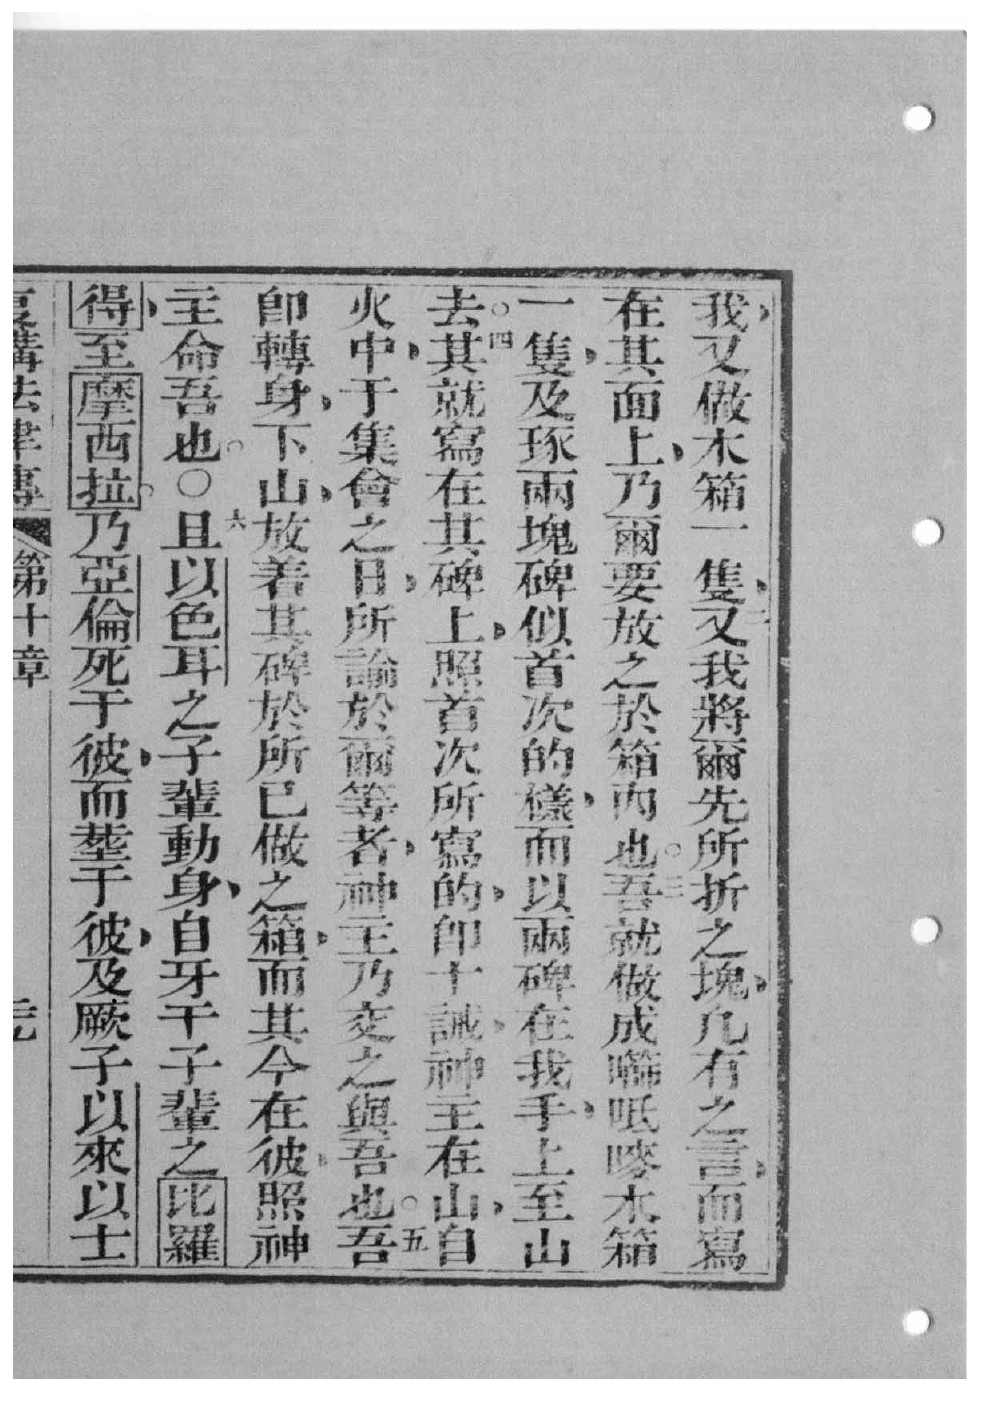 我又做木箱一隻二又我將爾先所折之塊凡有之言而寫
在其面上乃爾要放之於箱內也○三吾就做成㘔呧嘜木箱
一隻及琢兩塊碑似首次的樣而以兩碑在我手上至山
去○四其就寫在其碑上照首次所寫的卽十誡神主在山自
火中于集會之日所諭於爾等者神主乃交之與吾也○五吾
卽轉身下山放着其碑於所已做之箱而其今在彼照神
主命吾也○○六且以色耳之子輩動身自牙干子輩之比羅
得至摩西拉○乃亞倫死于彼而塟于彼及厥子以來以士
復講法律專 第十章 元